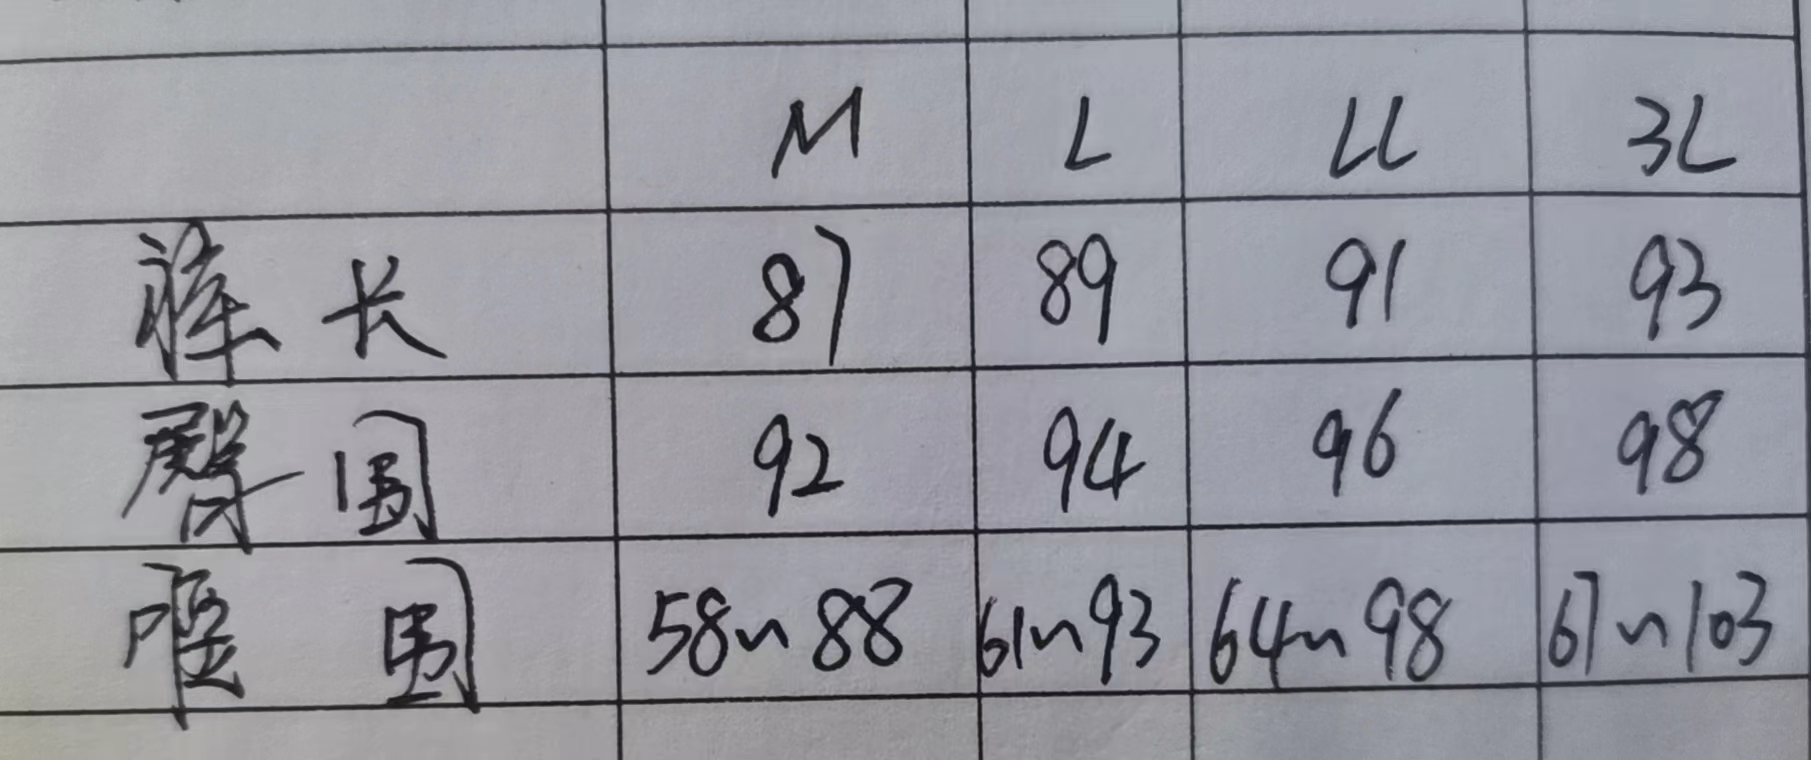 M L LL 3L
裤长 87 89 91 93
臀围 92 94 96 98
腰围 58~88 61~93 64~98 67~103